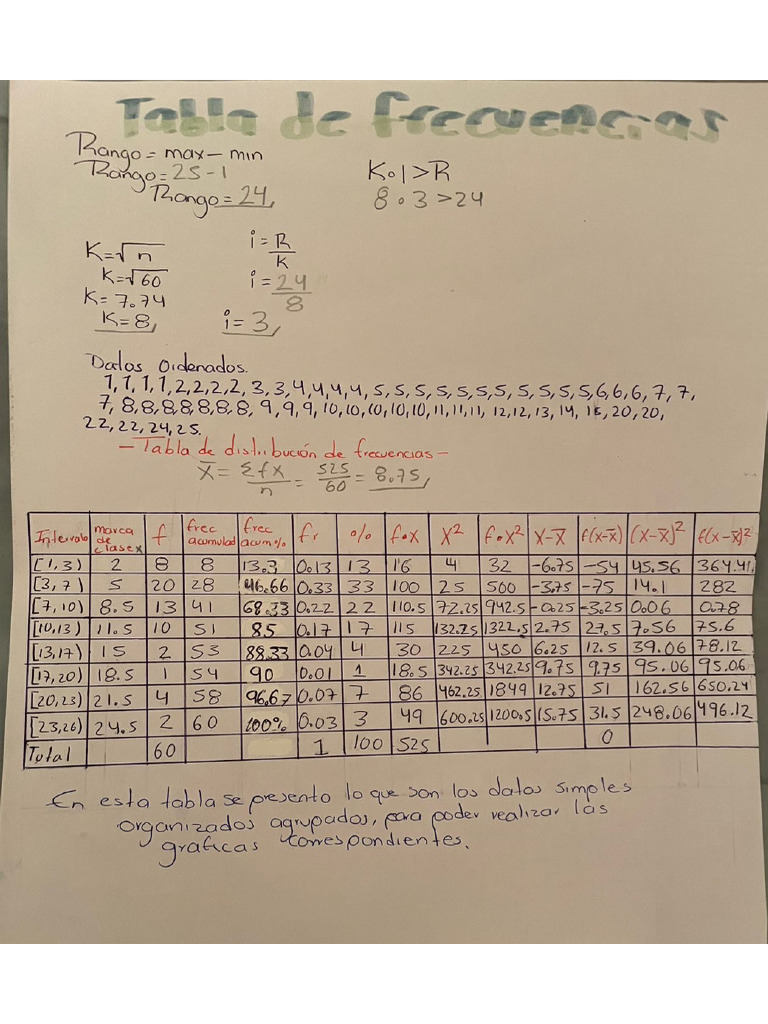 Tabla de frecuencias
Rango= max-min
Rango= 25-1
Rango= 24,
K•I>R
8•3>24
K=√n
K=√60
K= 7.74
K=8,
i=R/K
i=24/8
i=3,
Datos Ordenados.
1,1,1,1,2,2,2,2,3,3,4,4,4,4,5,5,5,5,5,5,5,5,5,5,5,6,6,6,7,7,
7,8,8,8,8,8,8,8,9,9,9,10,10,10,10,10,11,11,11,12,12,13,14,18,20,20,
22,22,24,25.
-Tabla de distribución de frecuencias-
X̄= Σfx/n = 525/60 = 8.75,
Intervalo | marca de clase x | f | frec acumulad | frec acum% | fr | % | f•x | x² | f•x² | x-x̄ | f(x-x̄) | (x-x̄)² | f(x-x̄)²
[1,3) | 2 | 8 | 8 | 13.3 | 0.13 | 13 | 16 | 4 | 32 | -6.75 | -54 | 45.56 | 364.41
[3,7) | 5 | 20 | 28 | 46.66 | 0.33 | 33 | 100 | 25 | 500 | -3.75 | -75 | 14.1 | 282
[7,10) | 8.5 | 13 | 41 | 68.33 | 0.22 | 22 | 110.5 | 72.25 | 942.5 | -0.25 | -3.25 | 0.06 | 0.78
[10,13) | 11.5 | 10 | 51 | 85 | 0.17 | 17 | 115 | 132.25 | 1322.5 | 2.75 | 27.5 | 7.56 | 75.6
[13,17) | 15 | 2 | 53 | 88.33 | 0.04 | 4 | 30 | 225 | 450 | 6.25 | 12.5 | 39.06 | 78.12
[17,20) | 18.5 | 1 | 54 | 90 | 0.01 | 1 | 18.5 | 342.25 | 342.25 | 9.75 | 9.75 | 95.06 | 95.06
[20,23) | 21.5 | 4 | 58 | 96.67 | 0.07 | 7 | 86 | 462.25 | 1849 | 12.75 | 51 | 162.56 | 650.24
[23,26) | 24.5 | 2 | 60 | 100% | 0.03 | 3 | 49 | 600.25 | 1200.5 | 15.75 | 31.5 | 248.06 | 496.12
Total | 60 | 1 | 100 | 525 | 0
En esta tabla se presento lo que son los datos simples
organizados agrupados, para poder realizar las
graficas correspondientes.